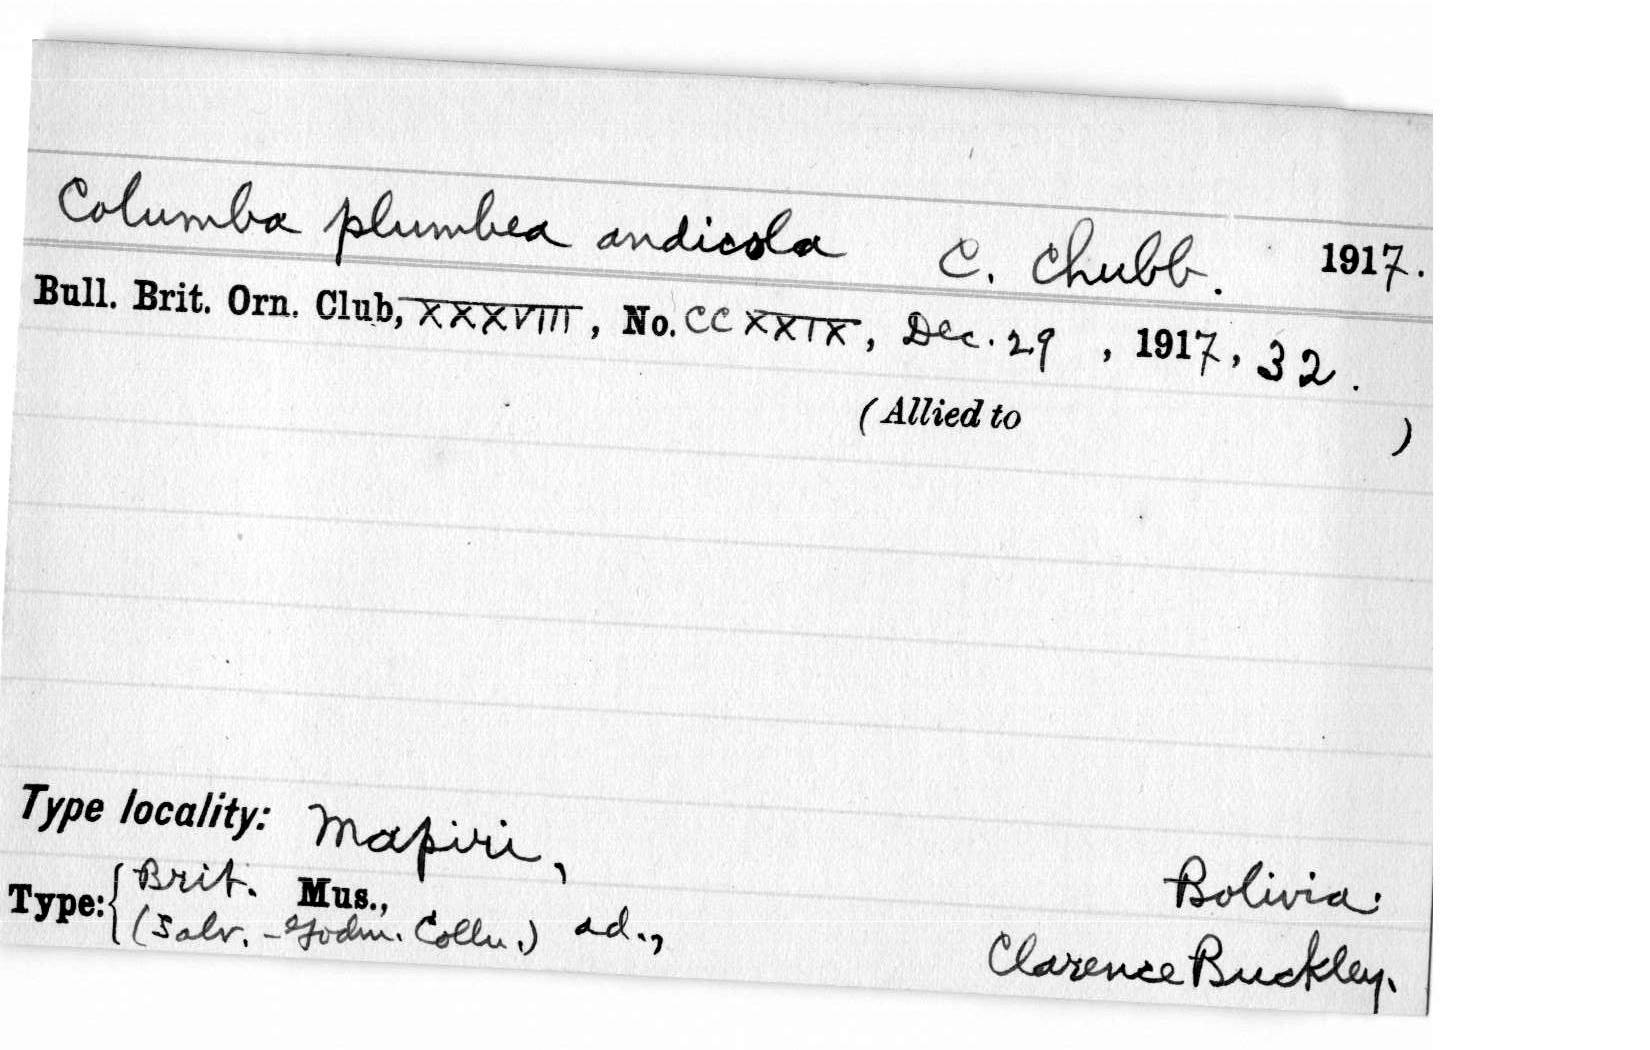 Columba plumbea andicola C. Chubb. 1917.
Bull. Brit. Orn. Club, XXXVIII, No. CCXXIX, Dec. 29, 1917, 32.
(Allied to )
Type locality: Mapiri, Bolivia.
Type: { Brit. Mus.,
(Salv.-Godm. Colln.) ad., Clarence Buckley.